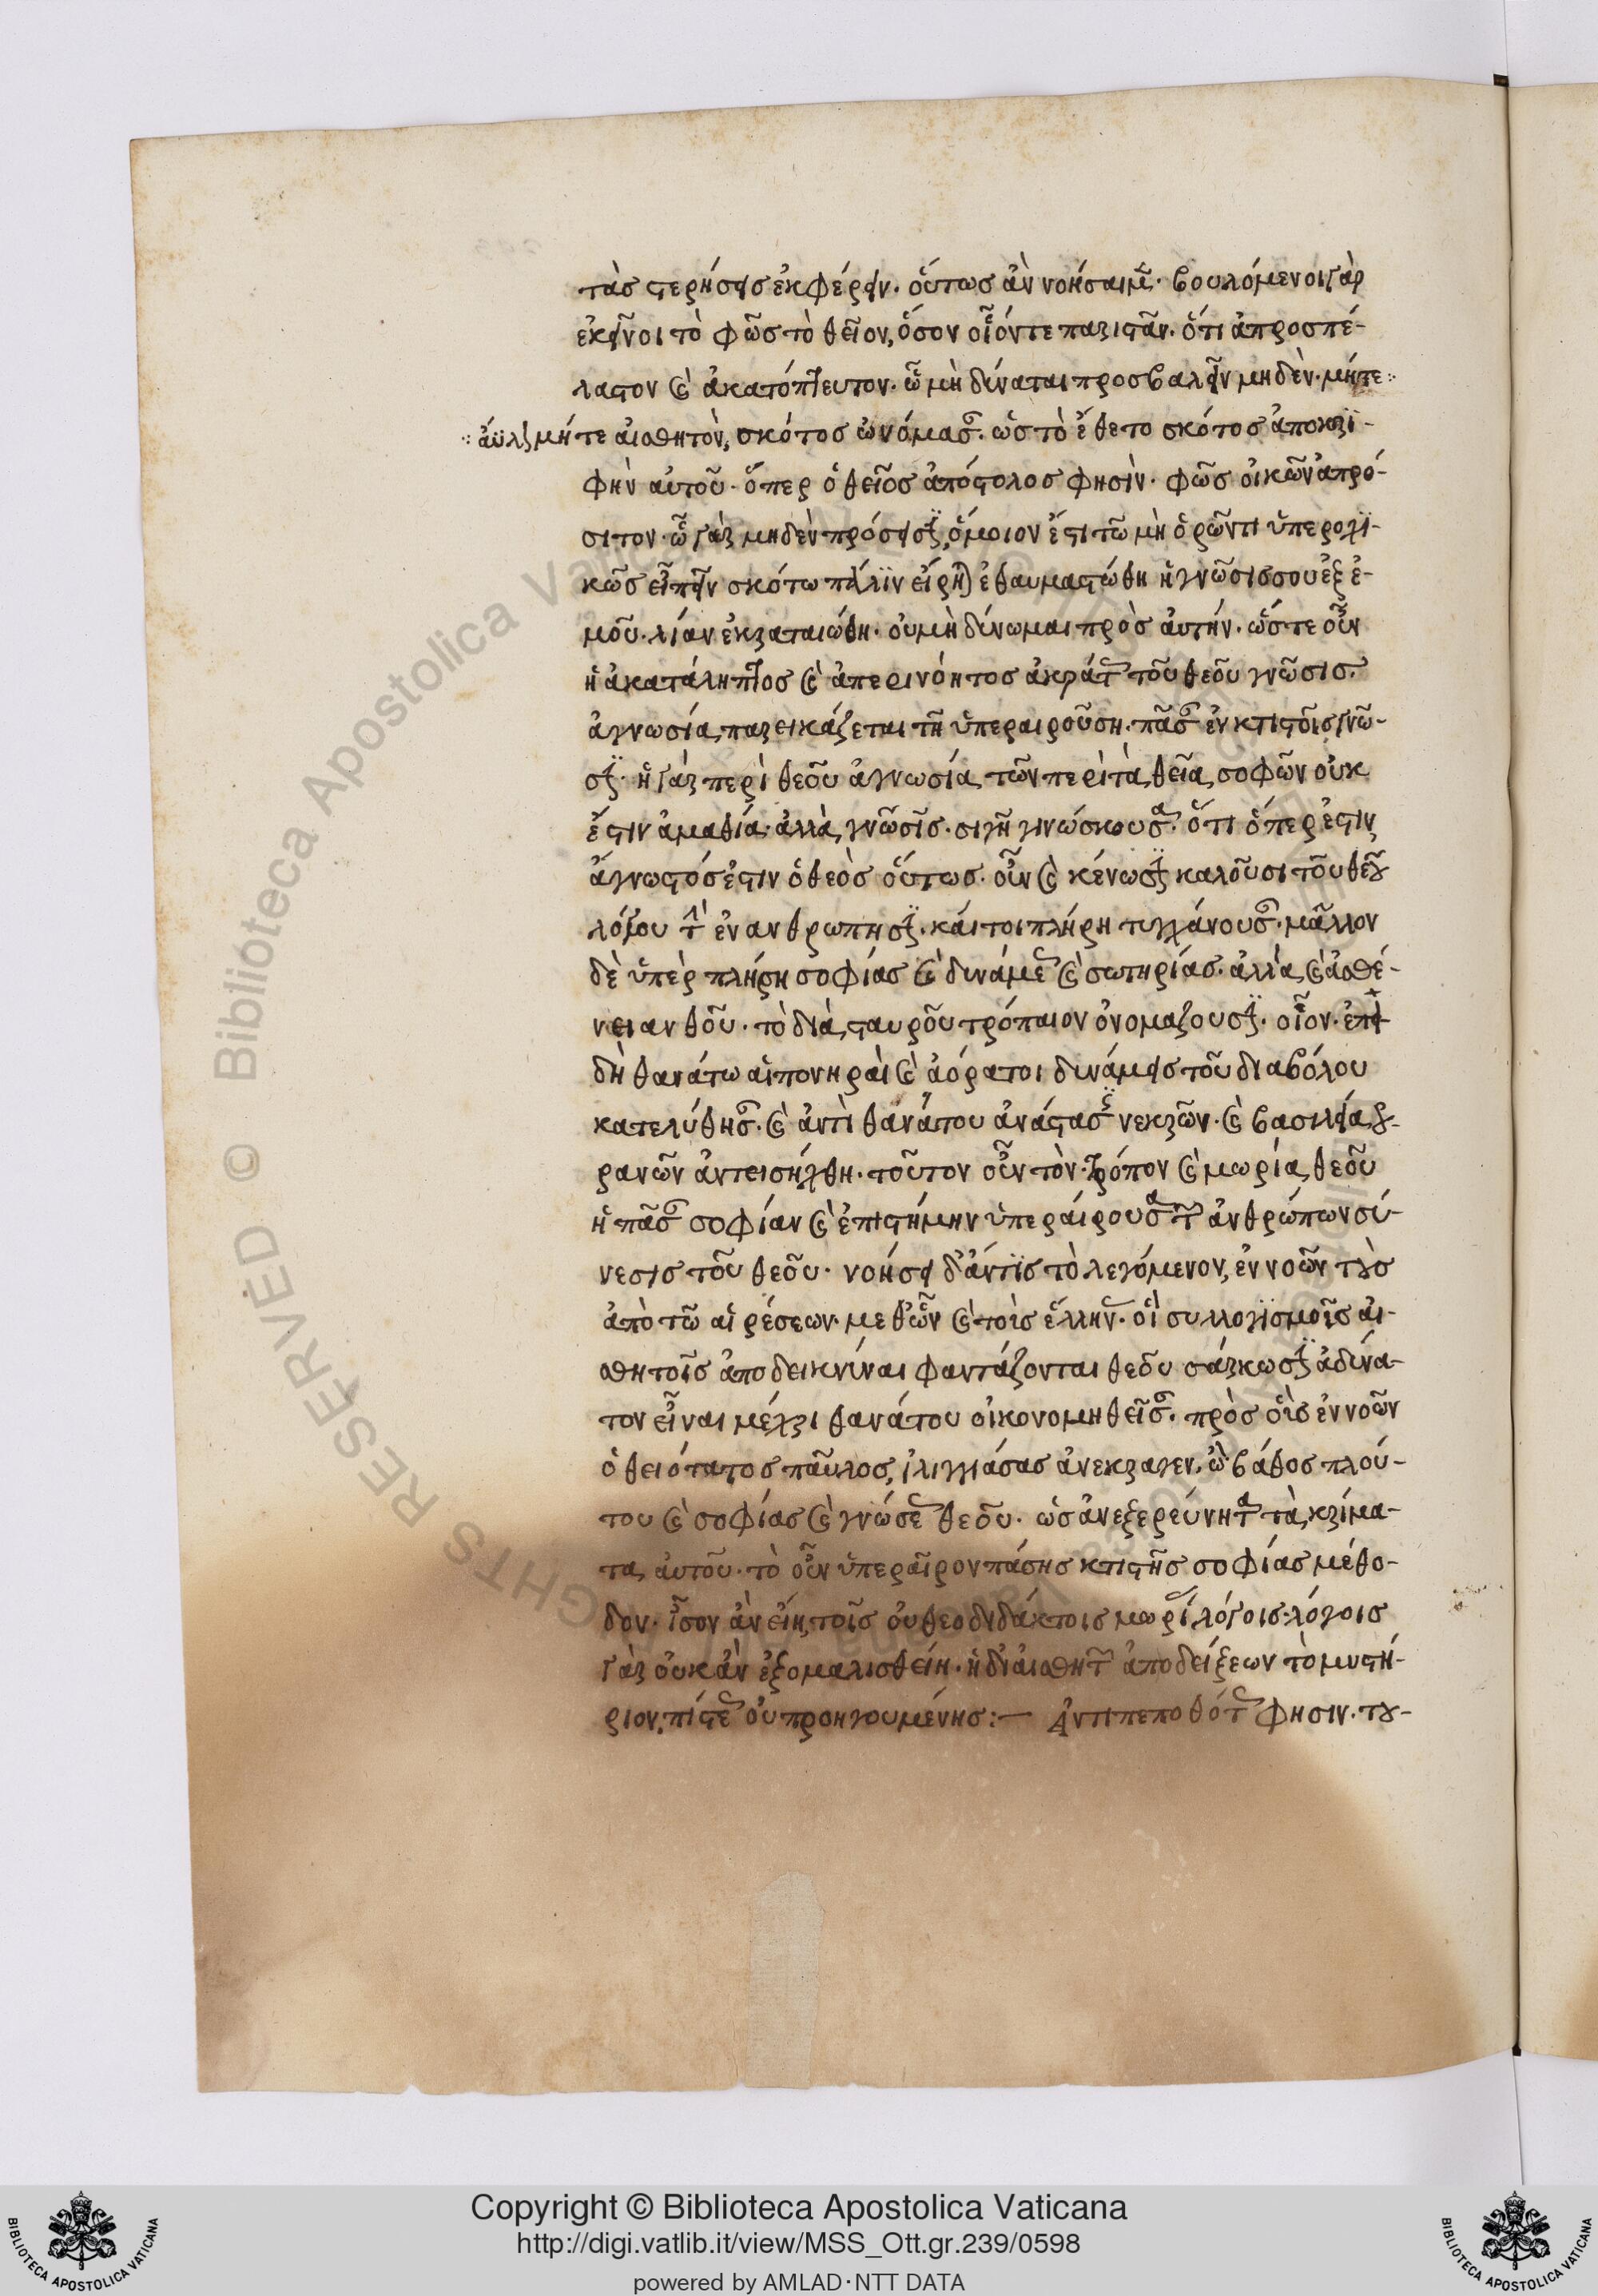 τὰς στερήσεις ἐκφέρειν· οὕτως ἂν νοήσαιμεν· βουλόμενοι γὰρ
ἐκεῖνοι τὸ φῶς τὸ θεῖον, ὅσον οἷόντε παριστᾶν· ὅτι ἀπροσπέ-
λαστον καὶ ἀκατόπτευτον· ὧ μὴ δύναται προσβαλεῖν μηδὲν· μήτε
ἄϋλον μήτε αἰσθητὸν, σκότος ὠνόμασαν· ὡς τὸ ἔθετο σκότος ἀποκρϊ-
φὴν αὐτοῦ· ὅπερ ὁ θεῖος ἀπόστολος φησὶν· φῶς οἰκῶν ἀπρό-
σιτον· ὧ γὰρ μηδὲν πρόσεισϊν, ὅμοιον ἐστι τῶ μὴ ὁρῶντι ὑπερολϊ-
κῶς εἰπεῖν σκότω πάλϊν εἴρηται ἐθαυμαστώθη ἡ γνῶσις σου ἐξ ἐ-
μοῦ· λίαν ἐκραταιώθη· οὐ μὴ δύνωμαι πρὸς ἀυτήν· ὥστε οὖν
ἡ ἀκατάληπτος καὶ ἀπερινόητος ἀκρότης τοῦ θεοῦ γνῶσις·
ἀγνωσία παρεικάζεται τῆ ὑπεραιρούση· πᾶσαν ἐν κτιστοῖς γνῶ-
σϊν· ἡ γὰρ περὶ θεοῦ ἀγνωσία τῶν περὶ τὰ θεῖα σοφῶν οὐκ
ἔστιν ἀμαθία· ἀλλὰ γνῶσις· σιγῆ γινώσκουσα· ὅτι ὅπερ ἐστιν
ἄγνωστός ἐστιν ὁ θεὸς οὕτως· οὖν καὶ κένωσϊν καλοῦσι τοῦ θεοῦ
λόγου τὴν ἐνανθρωπησϊν· κάιτοι πλήρη τυγχάνουσαν· μᾶλλον
δὲ ὑπὲρ πλήρη σοφίας καὶ δυνάμεως καὶ σωτηρίας· ἀλλὰ καὶ ἀσθέ-
νειαν θεοῦ· τὸ διὰ σταυροῦ τρόπαιον ὀνομαζουσϊν· οἷον· ἐπει
δὴ θανάτω αἱ πονηραὶ καὶ ἀόρατοι δυνάμεις τοῦ διαβόλου
κατελύθησαν· καὶ ἀντὶ θανάτου ἀνάστασις νεκρῶν· καὶ βασιλεία οὐ-
ρανῶν ἀντεισήχθη· τοῦτον οὖν τὸν τρόπον καὶ μωρία θεοῦ
ἡ πᾶσαν σοφίαν καὶ ἐπιστήμην ὑπεράιρουσα τῶν ἀνθρώπων σύ-
νεσις τοῦ θεοῦ· νοήσει δ' ἄντϊς τὸ λεγόμενον, ἐννοῶν τοὺς
ἀπὸ τῶ αἱρέσεων· μεθ' ὧν καὶ τοὶς ἕλλησιν· οἳ συλλογϊσμοῖς αἰ-
σθητοῖς ἀποδεικνύναι φαντάζονται θεοῦ σάρκωσϊν ἀδύνα-
τον εἶναι μέχρι θανάτου οἰκονομηθεῖσαν· πρὸς οἷς ἐννοῶν
ὁ θειότατος παῦλος, ἰλιγγιάσας ἀνεκραγεν, ὦ βάθος πλού-
του καὶ σοφίας καὶ γνώσεως θεοῦ· ὡς ἀνεξερεύνητα τὰ κρίμα-
τα αὐτοῦ· τὸ οὖν ὑπεραῖρον πάσης κτιστῆς σοφίας μέθο-
δον· ἶσον ἂν εἴη τοῖς οὐ θεοδιδάκτοις μωρίας λόγοις· λόγοις
γὰρ οὐκ ἂν ἐξομαλισθείη· ἡ δι' αἰσθητῶν ἀποδείξεων τὸ μυστή-
ριον, πίστεως οὐ προηγουμένης:— Ἀντιπεπονθότως φησιν· του-